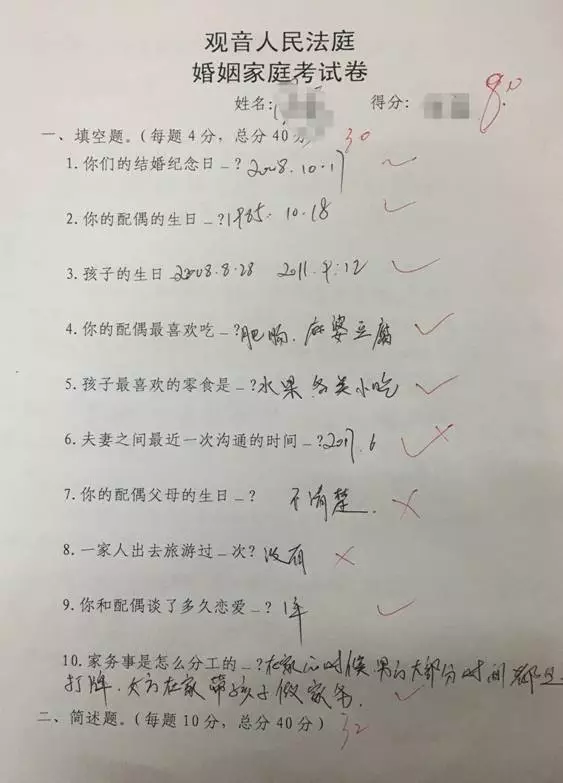 观音人民法庭
婚姻家庭考试卷
姓名: 得分: 80
一、填空题。(每题4分,总分40分) 30
1.你们的结婚纪念日_?2008.10.17
2.你的配偶的生日_?1985.10.18
3.孩子的生日 2008.8.28 2011.9.12
4.你的配偶最喜欢吃_?肥肠.麻婆豆腐
5.孩子最喜欢的零食是_?水果 各类小吃
6.夫妻之间最近一次沟通的时间_?2017.6
7.你的配偶父母的生日_? 不清楚.
8.一家人出去旅游过_次?没有
9.你和配偶谈了多久恋爱_?1年
10.家务事是怎么分工的_?在家的时候 男的大部分时间都是
打牌.女的在家带孩子做家务.
二、简述题。(每题10分,总分40分) 32